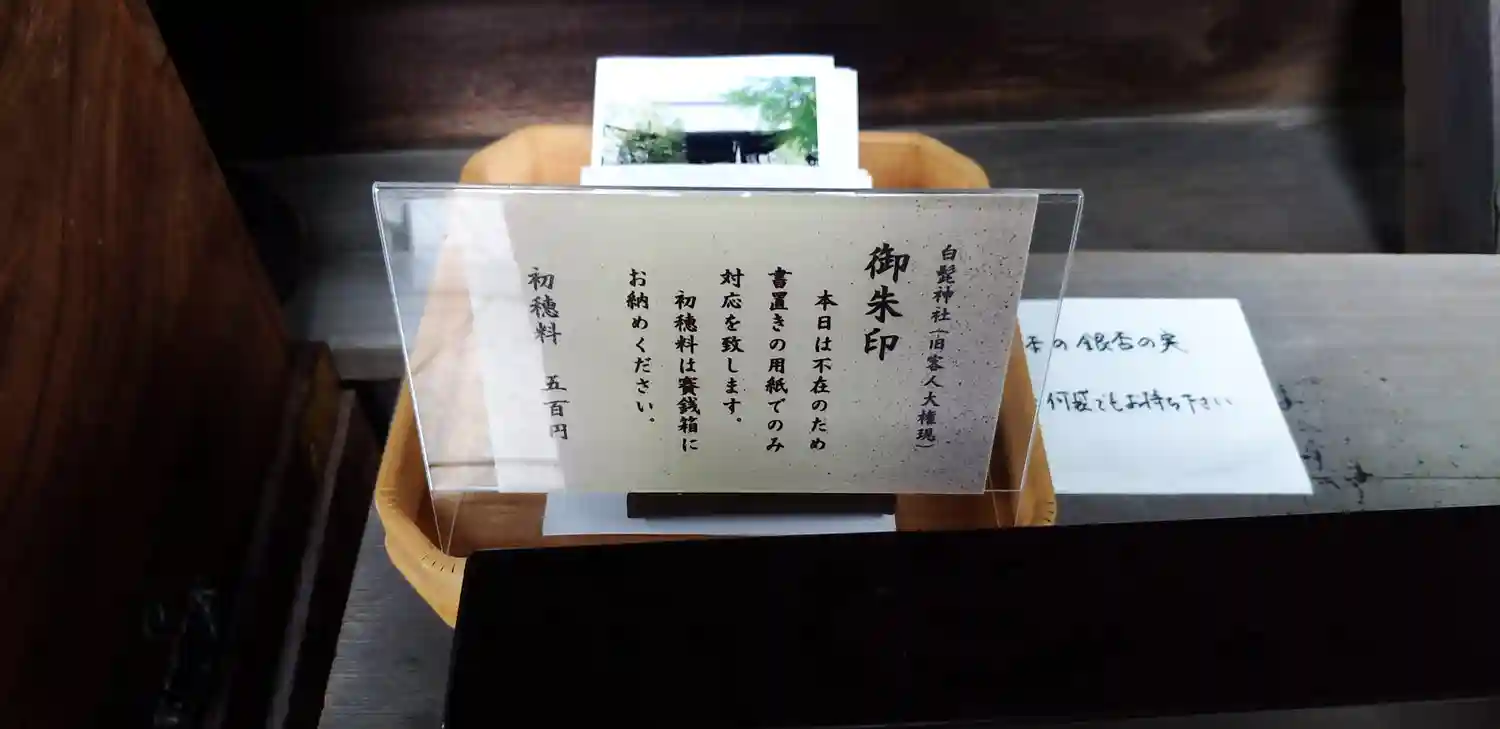 白髭神社(旧客人大権現)
御朱印
本日は不在のため
書置きの用紙でのみ
対応を致します。
初穂料は賽銭箱に
お納めください。
初穂料 五百円
の銀杏の実
何袋でもお持ち下さい